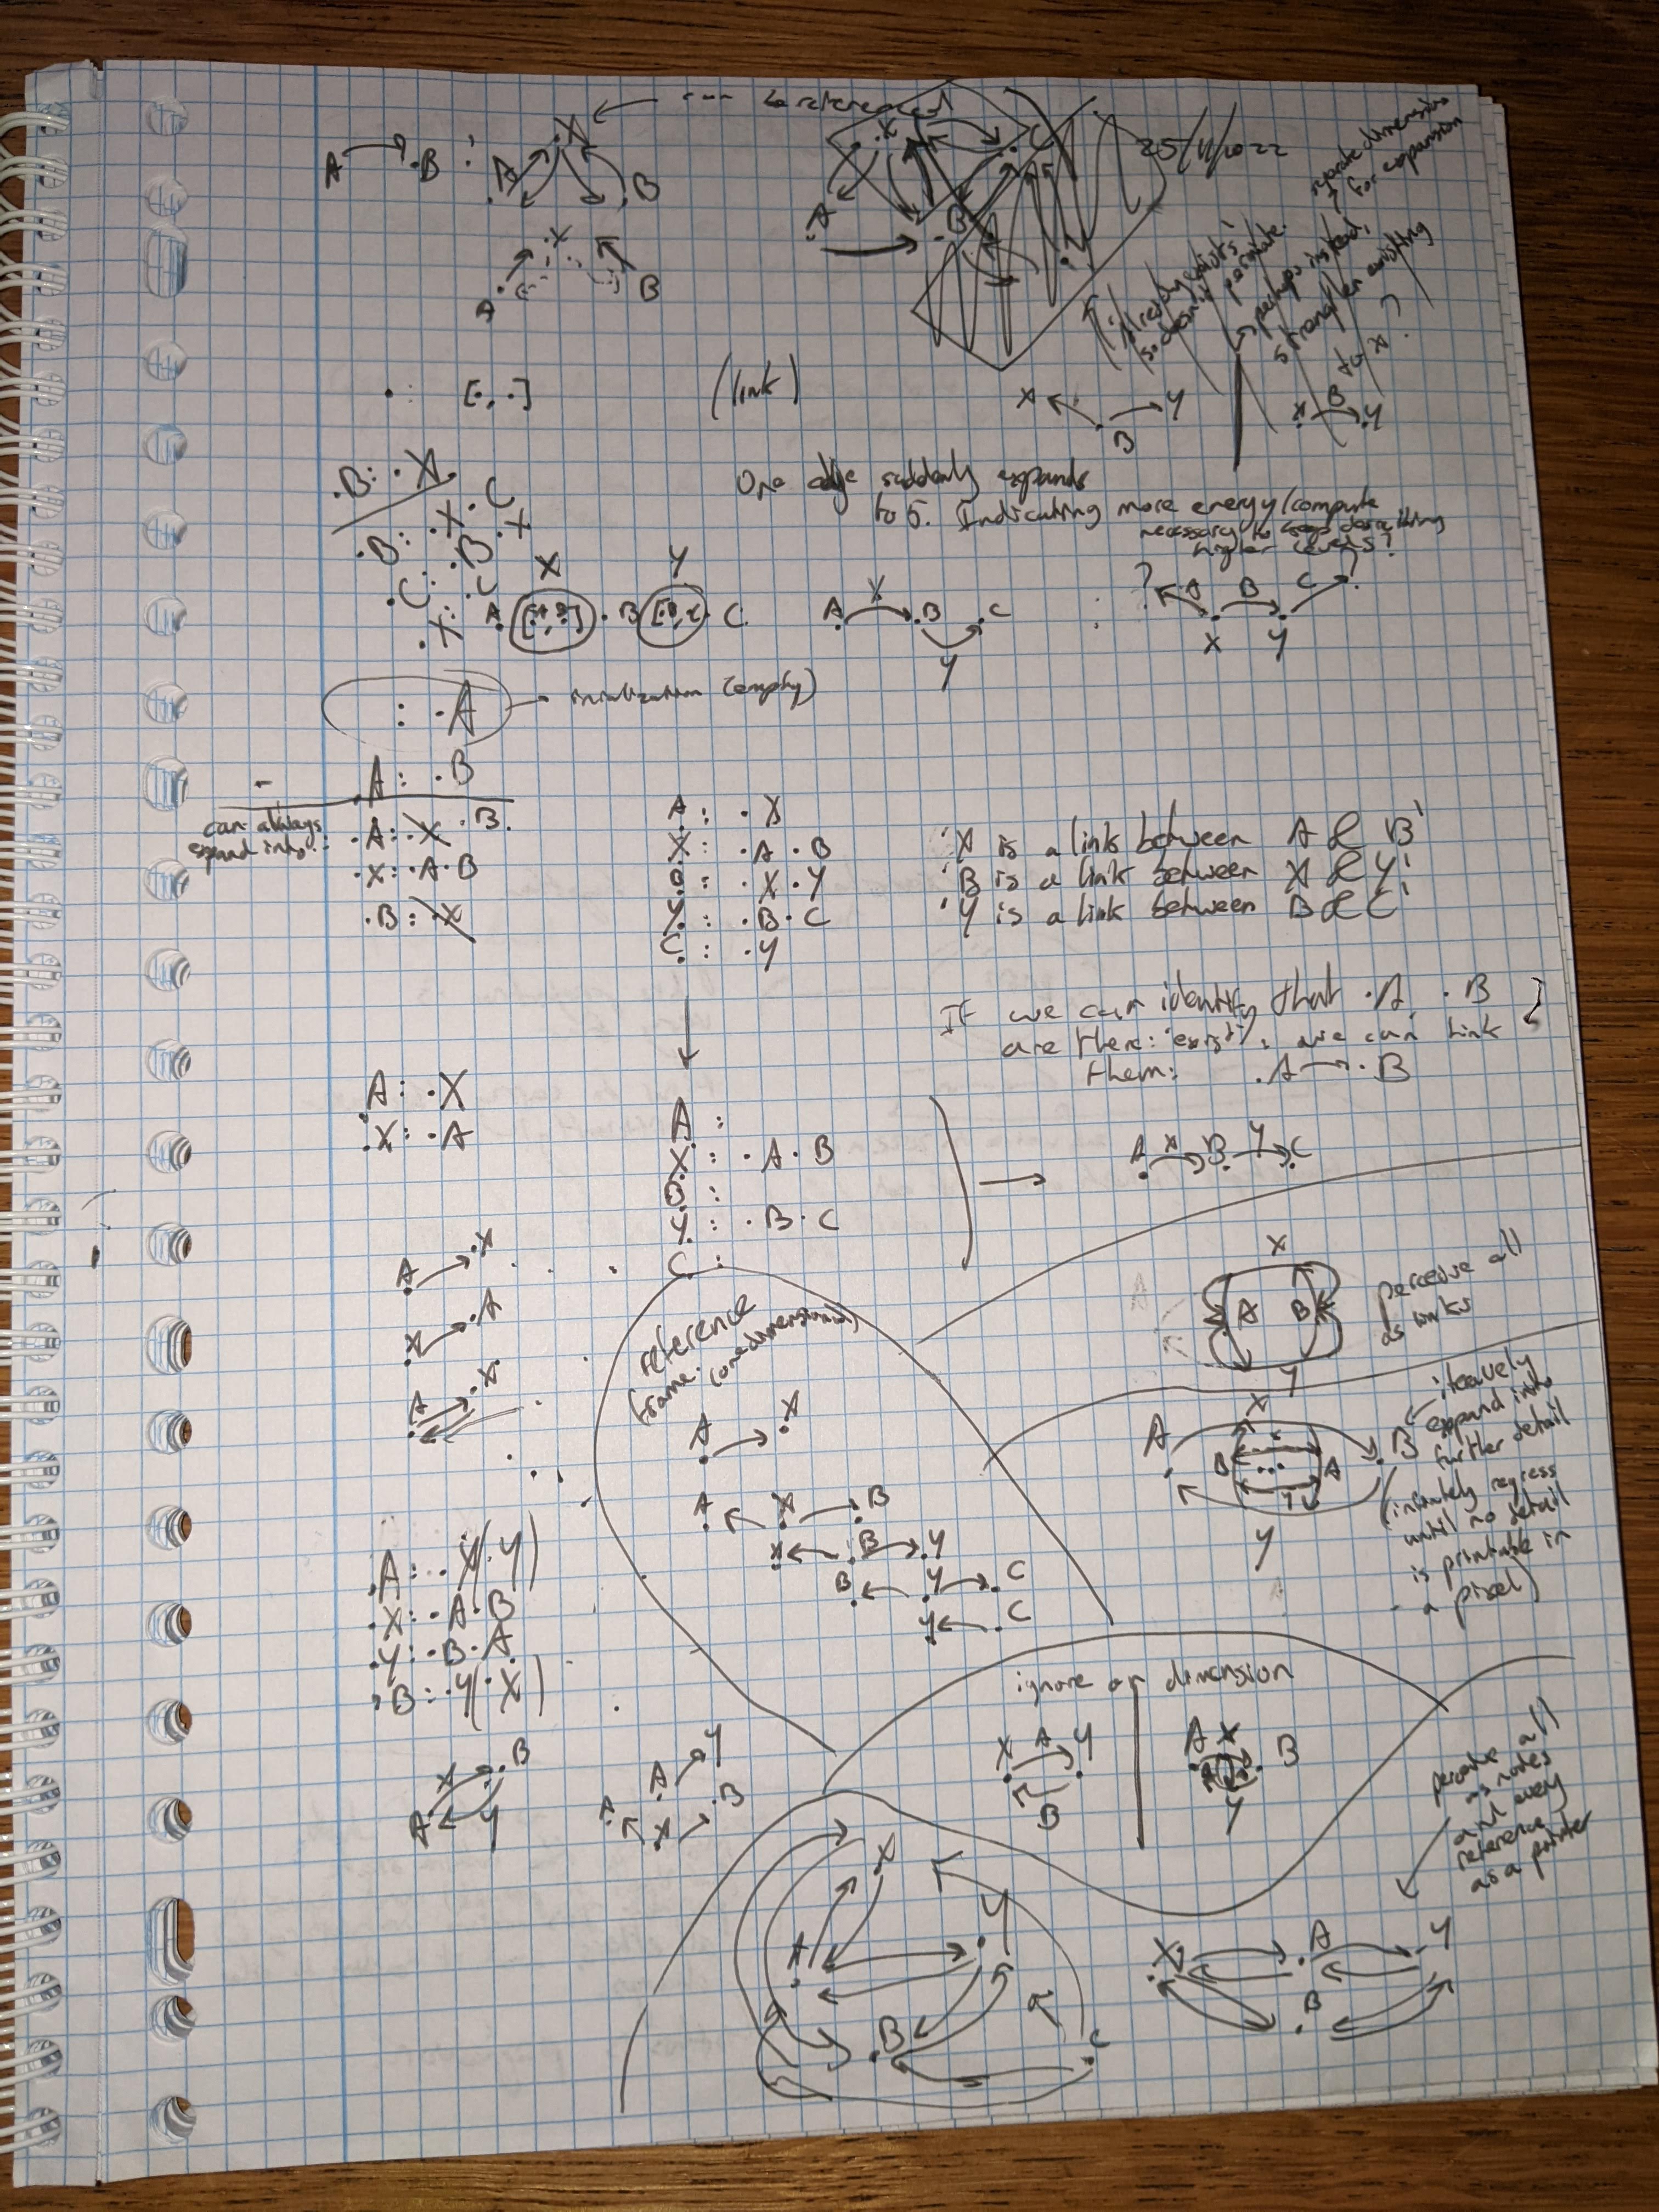 can be referenced
A B : A X B
25/11/2022
A X B
separate dimension
for expansion
'already exists'
so doesn't
perhaps instead,
strengthen existing
to X?
. [., .] (link)
X B Y
X B Y
.B: .X.
.B: .X .C
.C: .B .X
.X: .C
One edge suddenly expands
to 5. Indicating more energy/compute
necessary to keep describing
higher levels?
X Y
A .B C
A X B Y C
? A B C ?
X Y
: .A initialization (empty)
.A: .B
can always
expand into:
.A: .X .B.
.X: .A .B
.B: .X
A: .X
X: .A .B
B: .X .Y
Y: .B .C
C: .Y
'X is a link between A & B'
'B is a link between X & Y'
'Y is a link between B & C'
If we can identify that .A .B
are there: 'exist', we can link
them: .A → .B
.A: .X
.X: .A
A:
X: .A .B
B:
Y: .B .C
C:
→ A X B Y C
A X
X A
A X
reference
frame: (one dimensional)
A X
A X B
X B Y
B Y C
Y C
X
A B
Y
perceive all
as links
A X B
B A
Y
Y
expand into
further detail
(infinitely regress
until no detail
is printable in
a pixel)
.A: .X(.Y)
.X: .A .B
.Y: .B .A
.B: .Y(.X)
A X B
Y
A Y
A X B
ignore a dimension
X A Y
B
A X B
Y
perceive all
as nodes
and every
reference
as a pointer
X
A Y
B C
X A Y
B